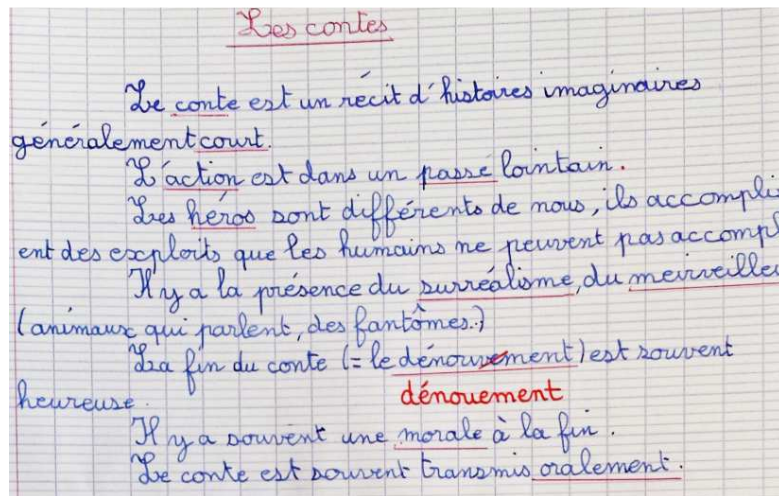 Les contes
Le conte est un récit d'histoires imaginaires
généralement court.
L'action est dans un passé lointain.
Les héros sont différents de nous, ils accompliss
ent des exploits que les humains ne peuvent pas accompl
Il y a la présence du surréalisme, du meirveilleu
(animaux qui parlent, des fantômes..)
La fin du conte (= le dénouement) est souvent
heureuse. dénouement
Il y a souvent une morale à la fin.
Le conte est souvent transmis oralement.